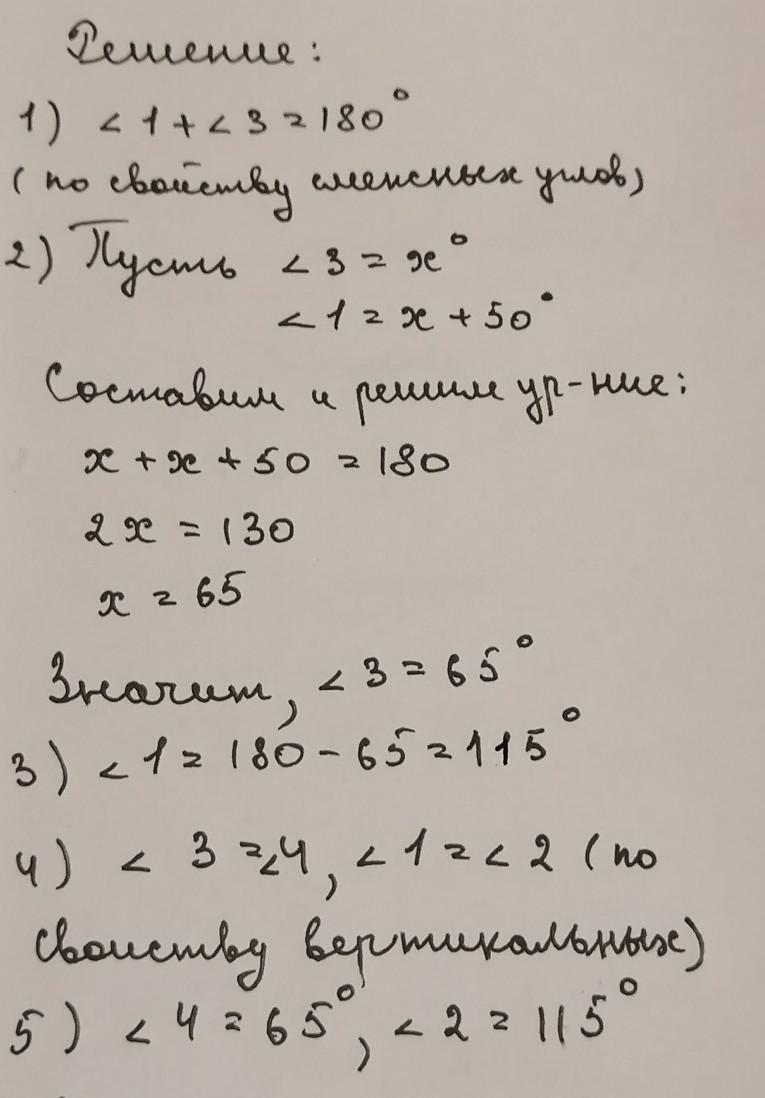 Решение:
1) < 1 + < 3 = 180°
(по свойству смежных углов)
2) Пусть < 3 = x°
< 1 = x + 50°
Составим и решим ур-ние:
x + x + 50 = 180
2x = 130
x = 65
Значит, < 3 = 65°
3) < 1 = 180 - 65 = 115°
4) < 3 = < 4, < 1 = < 2 (по
свойству вертикальных)
5) < 4 = 65°, < 2 = 115°